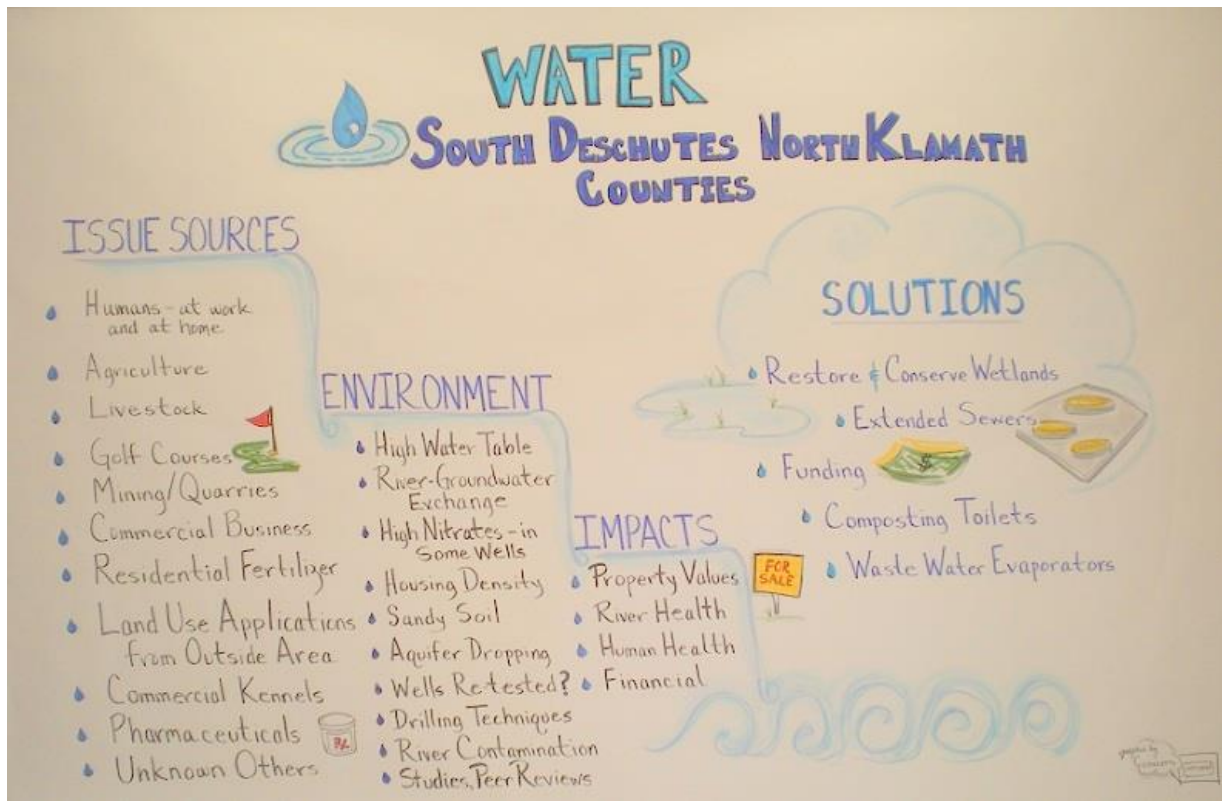 WATER
SOUTH DESCHUTES NORTH KLAMATH
COUNTIES
ISSUE SOURCES
Humans - at work
and at home
Agriculture
Livestock
Golf Courses
Mining/Quarries
Commercial Business
Residential Fertilizer
Land Use Applications
from Outside Area
Commercial Kennels
Pharmaceuticals
Rx
Unknown Others
ENVIRONMENT
High Water Table
River-Groundwater
Exchange
High Nitrates - in
Some Wells
Housing Density
Sandy Soil
Aquifer Dropping
Wells Re-tested?
Drilling Techniques
River Contamination
Studies, Peer Reviews
IMPACTS
Property Values
River Health
Human Health
Financial
FOR
SALE
SOLUTIONS
Restore & Conserve Wetlands
Extended Sewers
Funding
$
Composting Toilets
Waste Water Evaporators
graphics by